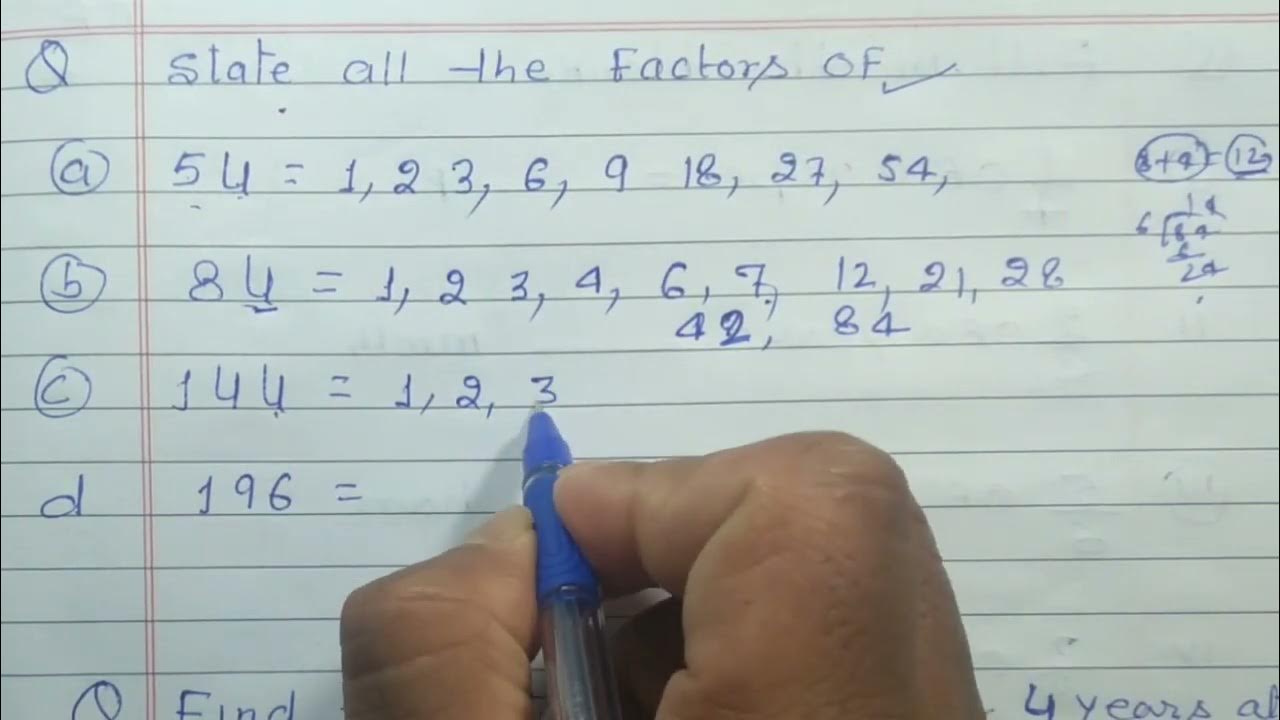 Q State all the Factors OF
a 54 = 1, 2 3, 6, 9 18, 27, 54,
8+4 = 12
14
6 84
6
24
b 84 = 1, 2 3, 4, 6, 7, 12, 21, 28
42, 84
c 144 = 1, 2, 3
d 196 =
Q Find 4 years